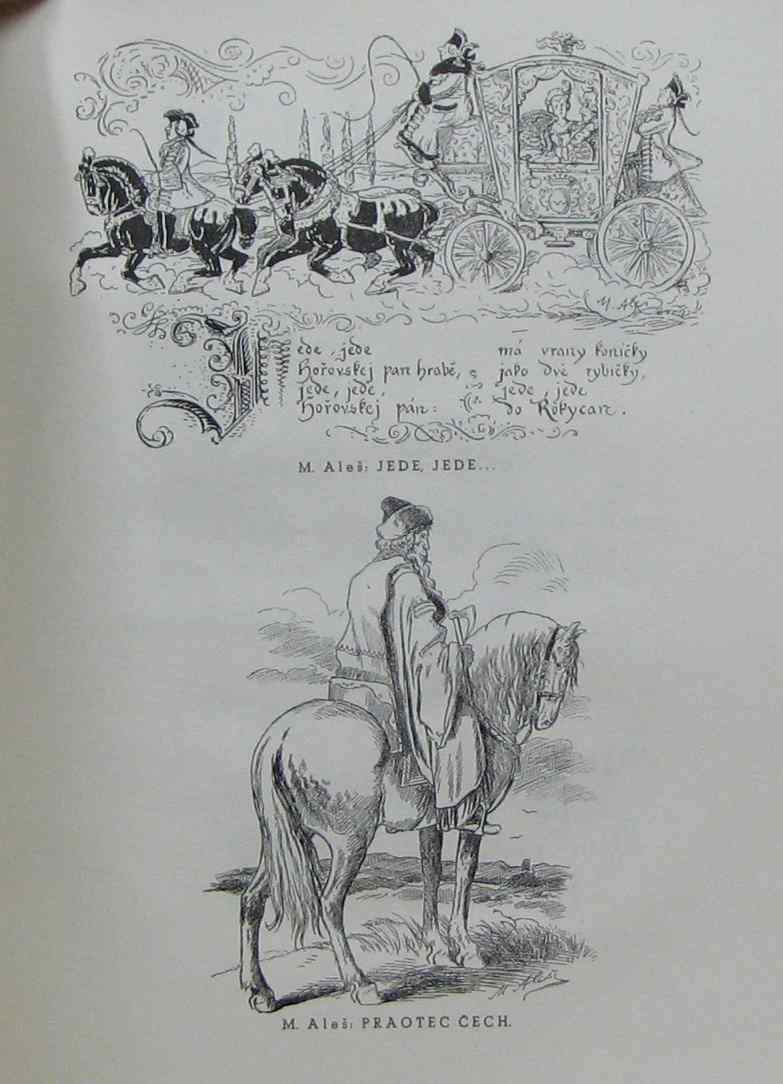 M. Aleš
Jede, jede
Hořovskej pan hrabě,
jede, jede,
Hořovskej pán:
má vrany koničky
jako dvě rybičky,
jede, jede
do Rokycan.
M. Aleš: JEDE, JEDE...
M. Aleš
M. Aleš: PRAOTEC ČECH.